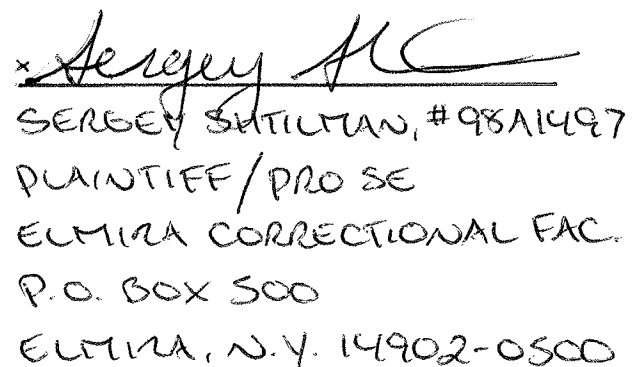 x Sergey
SERGEY SHTILMAN, #98A1497
PLAINTIFF/PRO SE
ELMIRA CORRECTIONAL FAC.
P.O. BOX 500
ELMIRA, N.Y. 14902-0500